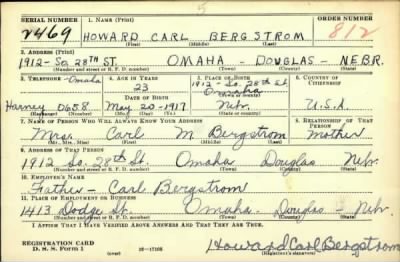 SERIAL NUMBER 1. NAME (Print) ORDER NUMBER
2469 HOWARD CARL BERGSTROM 812
(First) (Middle) (Last)
2. ADDRESS (Print)
1912-SO. 28TH ST. OMAHA - DOUGLAS - NEBR.
(Number and street or R. F. D. number) (Town) (County) (State)
3. TELEPHONE 4. AGE IN YEARS 5. PLACE OF BIRTH 6. COUNTRY OF CITIZENSHIP
Omaha 23 1912-So. 28th St.
Omaha
DATE OF BIRTH (Town or county)
Harney 0658 May-20-1917 Nebr. U.S.A.
(Exchange) (Number) (Mo.) (Day) (Yr.) (State or country)
7. NAME OF PERSON WHO WILL ALWAYS KNOW YOUR ADDRESS 8. RELATIONSHIP OF THAT PERSON
Mrs. Carl M Bergstrom Mother
(Mr., Mrs., Miss) (First) (Middle) (Last)
9. ADDRESS OF THAT PERSON
1912 So. 28th St. Omaha Douglas Nebr.
(Number and street or R. F. D. number) (Town) (County) (State)
10. EMPLOYER'S NAME
Father - Carl Bergstrom
11. PLACE OF EMPLOYMENT OR BUSINESS
1413 Dodge St. Omaha - Douglas - Nebr.
(Number and street or R. F. D. number) (Town) (County) (State)
I AFFIRM THAT I HAVE VERIFIED ABOVE ANSWERS AND THAT THEY ARE TRUE.
REGISTRATION CARD
D. S. S. Form 1 16-17105 Howard Carl Bergstrom
(Registrant's signature)